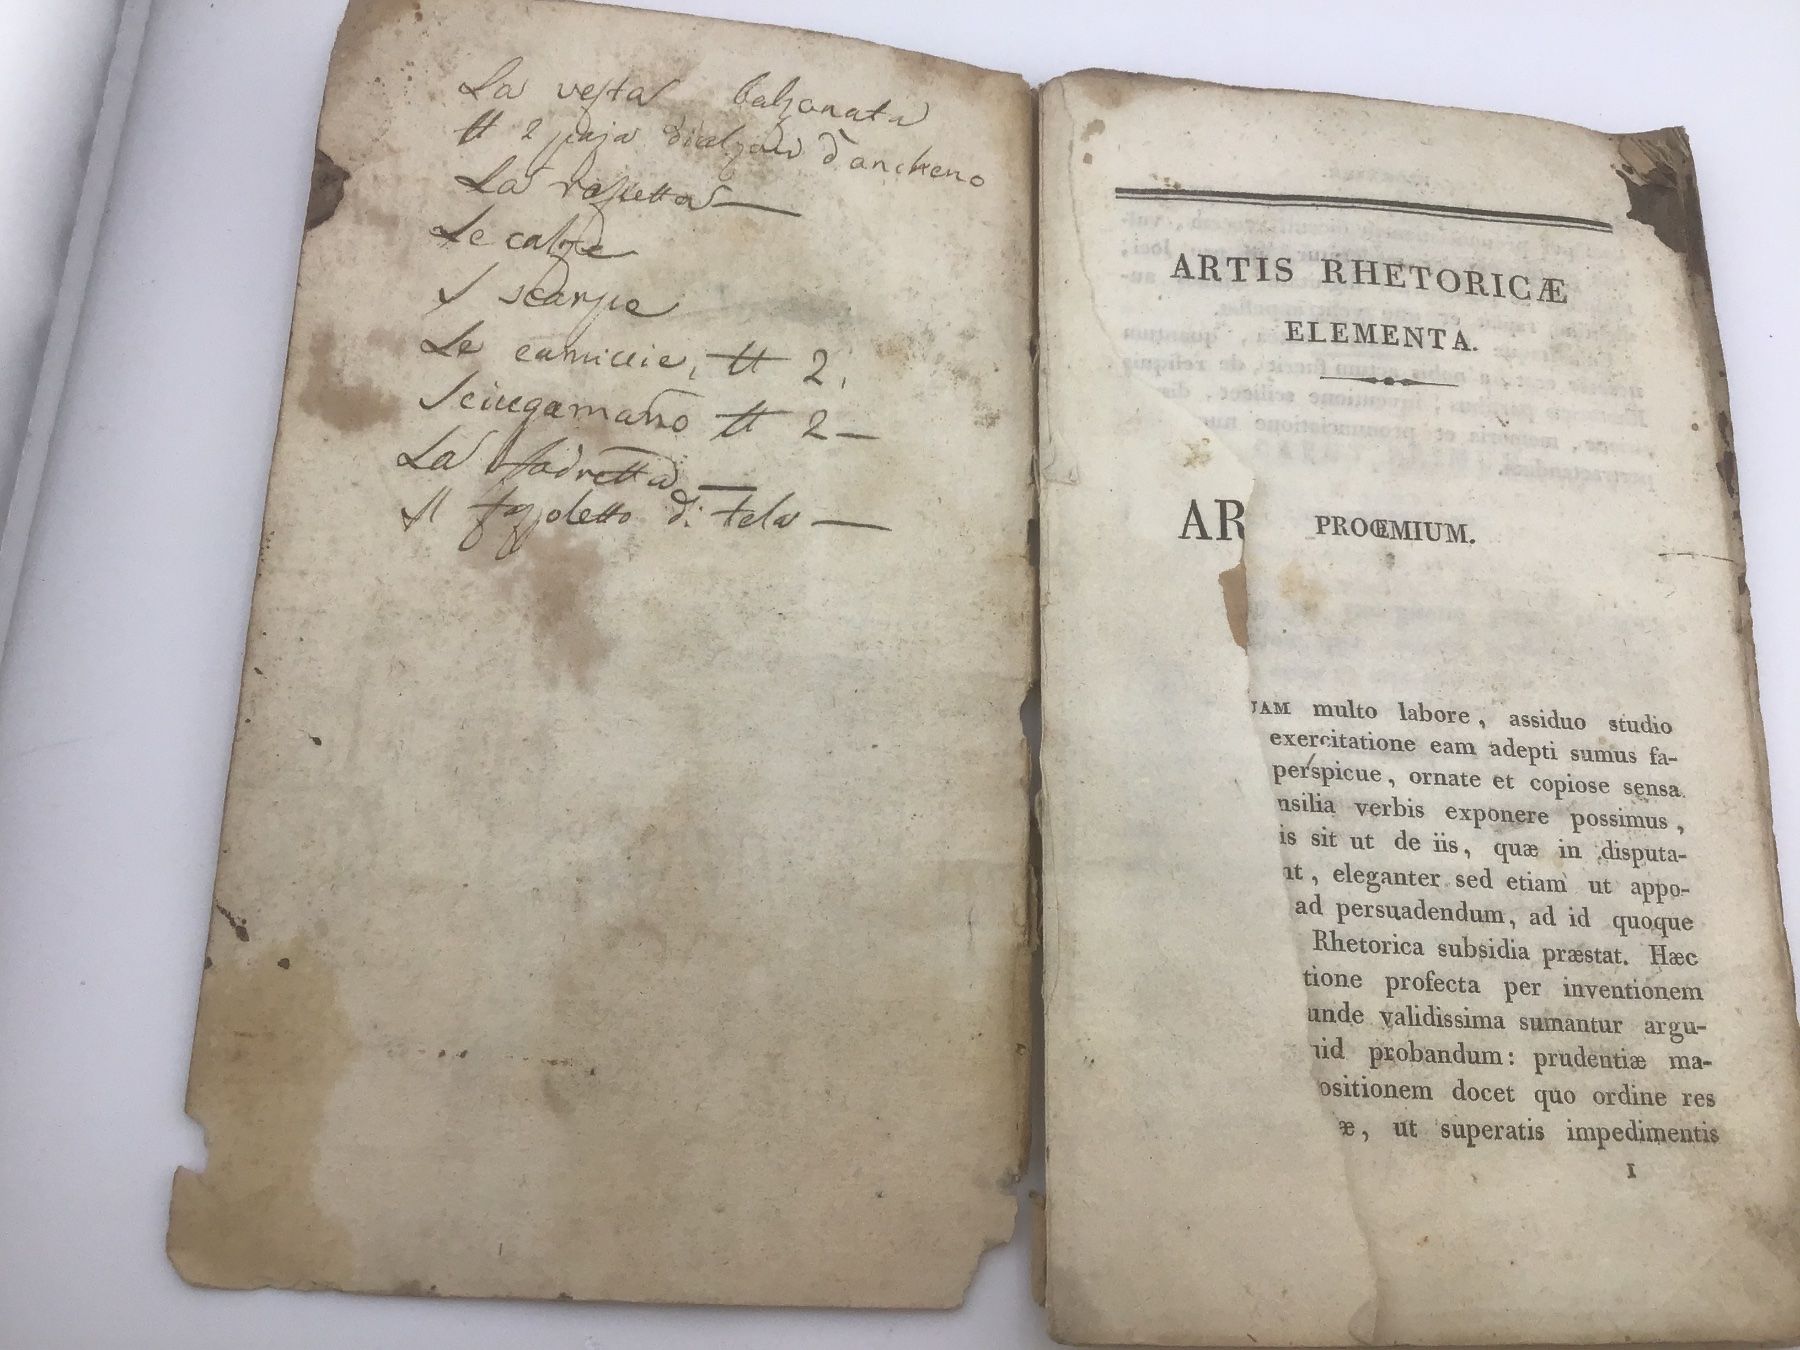 La vesta balzonata
tt 2 paja di calzoni d'ancheno
La
Le calze
scarpe
Le camiccie, tt 2,
Sciugamano tt 2 —
La fodretta —
Il fazzoletto di tela —
ARTIS RHETORICÆ
ELEMENTA.
AR
PROŒMIUM.
UAM multo labore, assiduo studio
exercitatione eam adepti sumus fa-
perspicue, ornate et copiose sensa
nsilia verbis exponere possimus,
is sit ut de iis, quæ in disputa-
nt, eleganter sed etiam ut appo-
ad persuadendum, ad id quoque
Rhetorica subsidia præstat. Hæc
tione profecta per inventionem
unde validissima sumantur argu-
uid probandum: prudentiæ ma-
ositionem docet quo ordine res
æ, ut superatis impedimentis
1